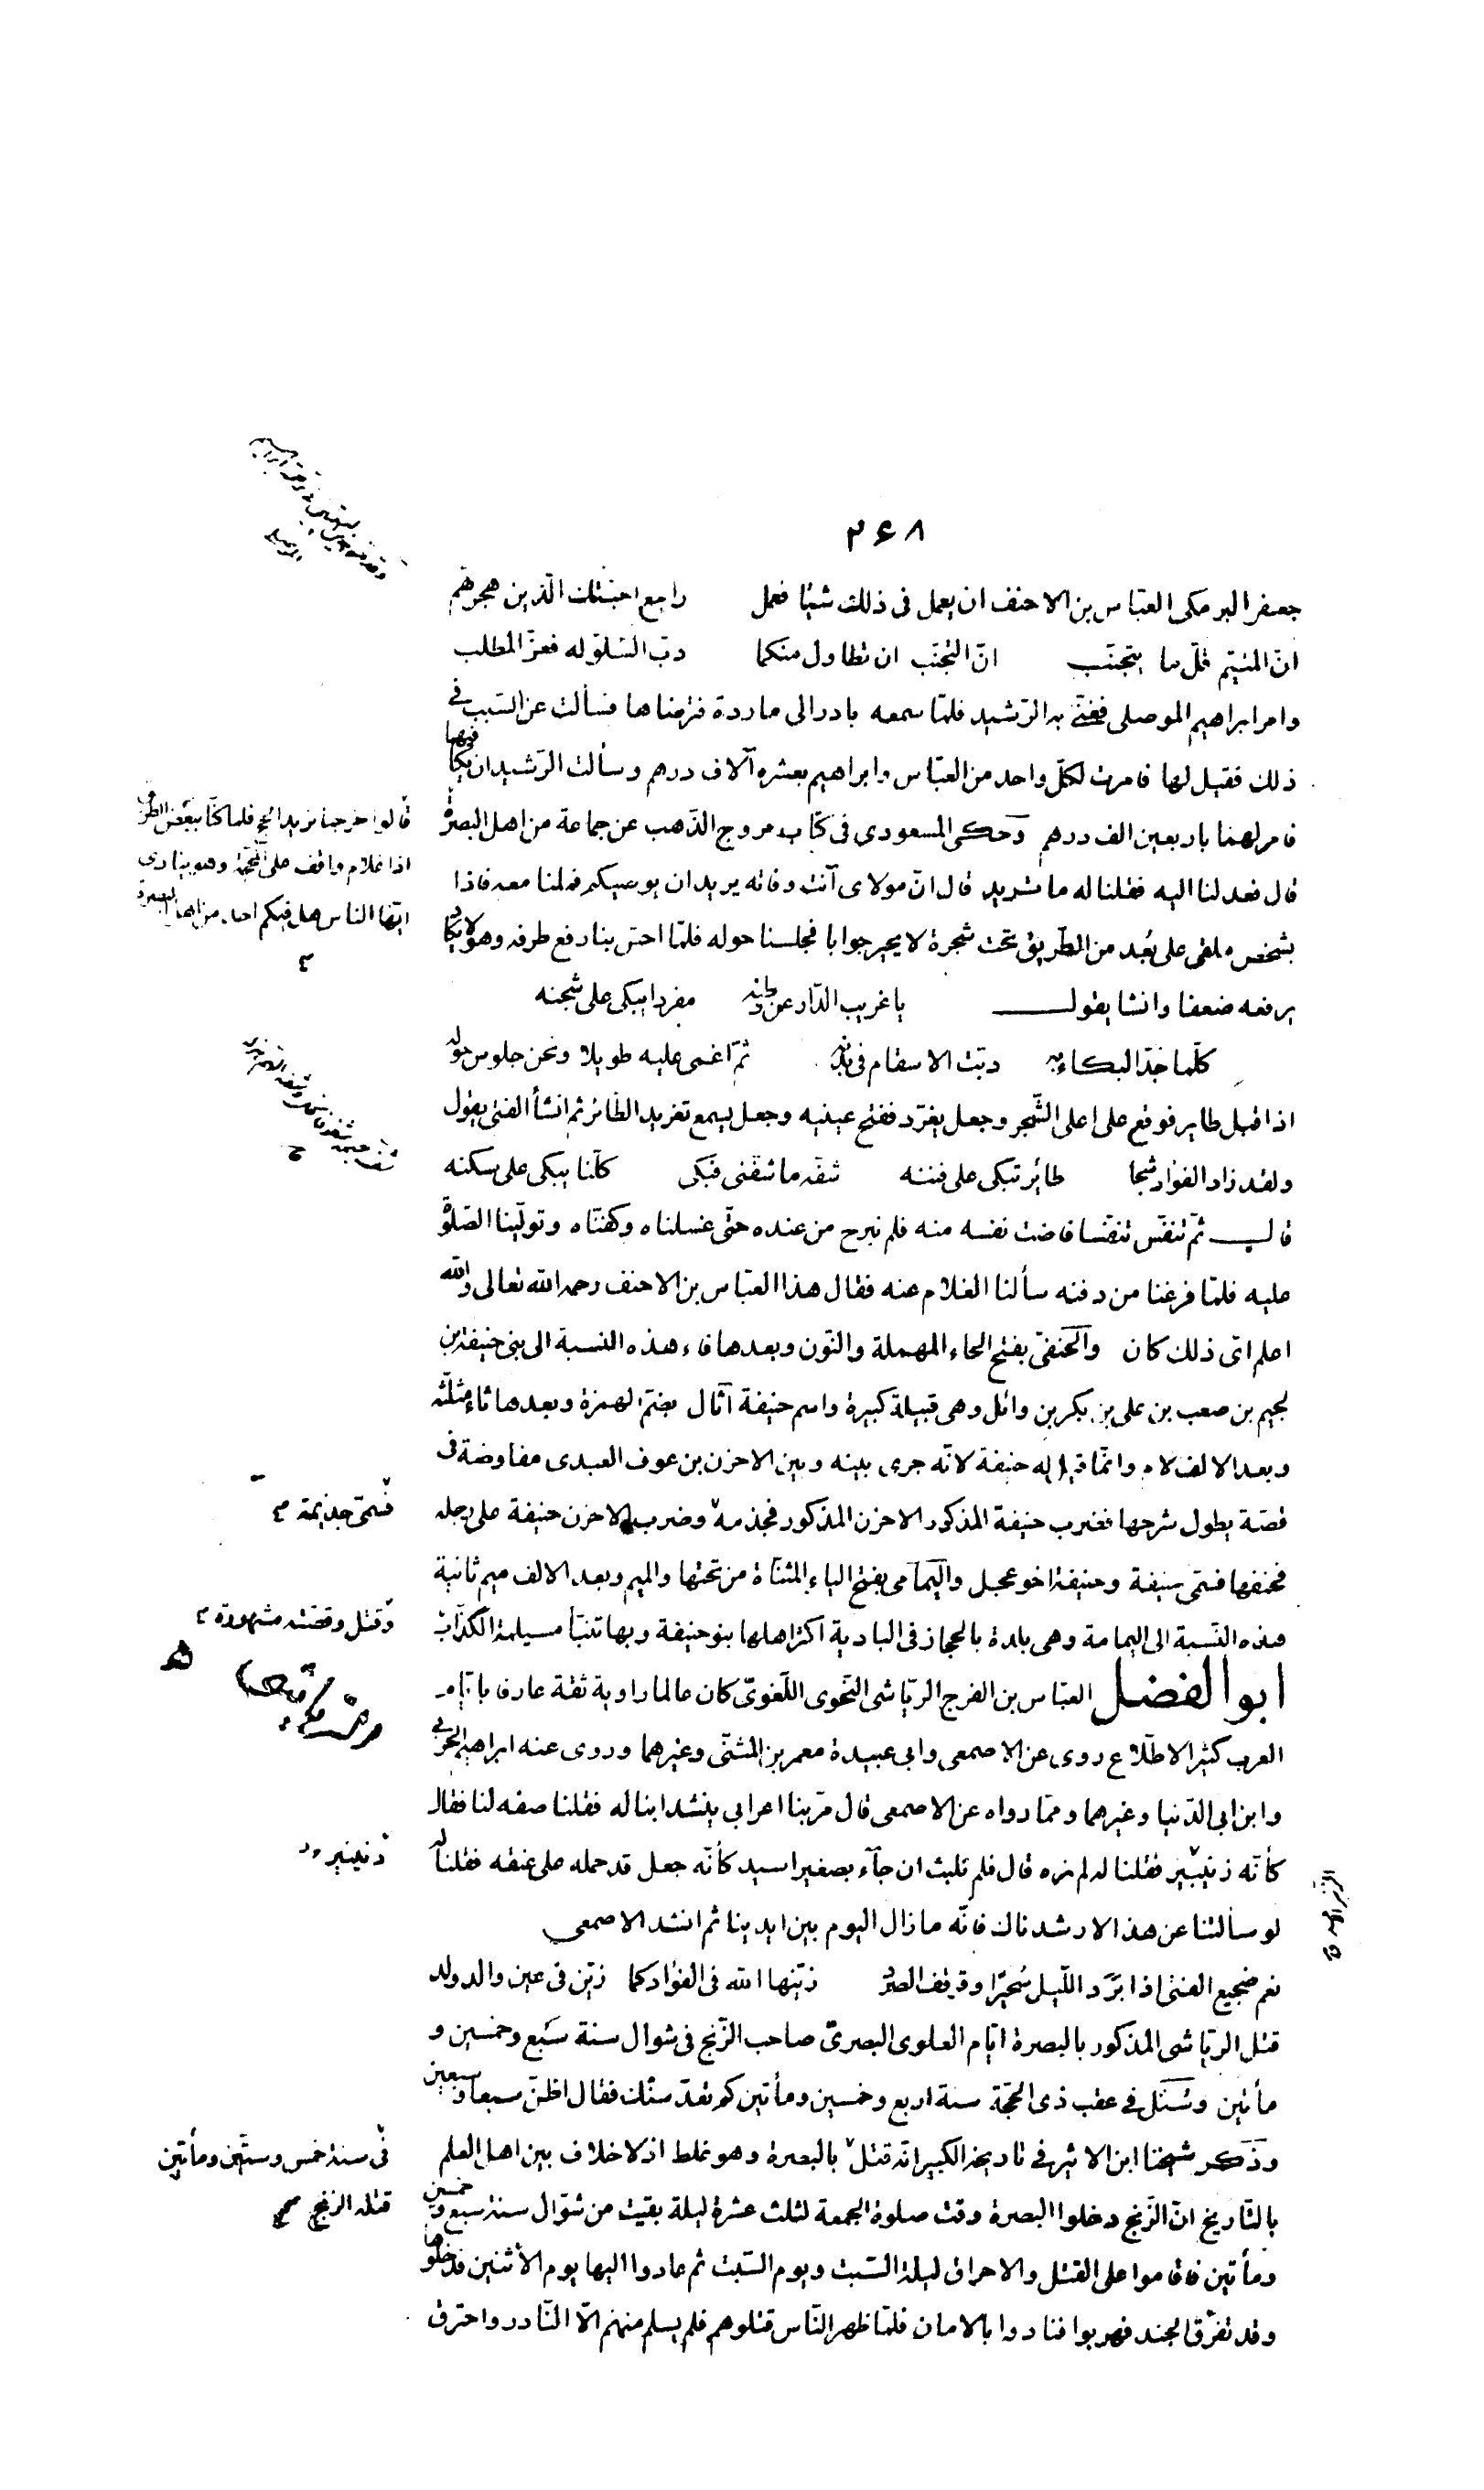 ٢٤٨
جعفر البرمكى العبّاس بن الاحنف ان يعمل فى ذلك شيئا فعمل راجع احبّتك الّذين هجرتهم
انّ المتيّم قلّ ما يتجنّب انّ التّجنّب ان تطاول منكما دبّ السّلوّ له فعزّ المطلب
وامر ابراهيم الموصلى فغنّى به الرّشيد فلمّا سمعه بادر الى ماردة فترضاها فسألت عن السّبب فى
ذلك فقيل لها فامرت لكلّ واحد من العبّاس وابراهيم بعشرة آلاف درهم وسألت الرّشيد ان يكافيهما
فامر لهما باربعين الف درهم وحكى المسعودى فى كتاب مروج الذّهب عن جماعة من اهل البصرة
قالوا خرجنا نريد الحج فلما كنّا ببعض الطريق
اذا غلام واقف على المحجّة وهو ينادى
ايّها الناس هل فيكم احد من اهل البصرة
قال فعدلنا اليه فقلنا له ما تريد قال انّ مولاى آنت وفاته يريد ان يوصيكم فملنا معه فاذا
بشخص ملقى على بُعد من الطّريق تحت شجرة لا يحير جوابا فجلسنا حوله فلمّا احسّ بنا رفع طرفه وهو لا يكاد
يرفعه ضعفا وانشا يقول يا غريب الدّار عن وطنه مفردا يبكى على شجنه
كلّما جدّ البكاء به دبّت الاسقام فى بدنه ثمّ اغمى عليه طويلا ونحن جلوس حوله
اذا قبل طاير فوقع على اعلى الشّجر وجعل يغرّد ففتح عينيه وجعل يسمع تغريد الطّائر ثم انشأ الفتى يقول
ولقد زاد الفؤاد شجا طائر تبكى على فننه شفّه ما شفّنى فبكى كلّنا يبكى على سكنه
قال ثمّ تنفّس تنفّسا فاضت نفسه منه فلم نبرح من عنده حتّى غسلناه وكفنّاه وتولّينا الصّلوة
عليه فلمّا فرغنا من دفنه سألنا الغلام عنه فقال هذا العبّاس بن الاحنف رحمه الله تعالى والله
اعلم اىّ ذلك كان والحنفىّ بفتح الحاء المهملة والنّون وبعدها فاء هذه النسبة الى بنى حنيفة بن
لجيم بن صعب بن على بن بكر بن وائل وهى قبيلة كبيرة واسم حنيفة آثال بضمّ الهمزة وبعدها ثاء مثلّثه
وبعد الالف لام وانّما قيل له حنيفة لانّه جرى بينه وبين الاحزن بن عوف العبدى مفاوضة فى
قصّة يطول شرحها فضرب حنيفة المذكور الاحزن المذكور فجذمه وضرب الاحزن حنيفة على رجله
فسمّى جذيمة
فحنفها فسمّى حنيفة وحنيفة اخو عجل واليمامى بفتح الياء المثنّاة من تحتها والميم وبعد الالف ميم ثانية
هذه النّسبة الى اليمامة وهى بلدة بالحجاز فى البادية اكثر اهلها بنو حنيفة وبها تنبّأ مسيلمة الكذّاب
وقتل وقصّته مشهورة
ابو الفضل العبّاس بن الفرج الرّياشى النّحوى اللّغوىّ كان عالما راوية ثقة عارفا بايّام
العرب كثير الاطّلاع روى عن الاصمعى وابى عبيدة معمر بن المثنّى وغيرهما وروى عنه ابراهيم الحربى
وابن ابى الدّنيا وغيرهما وممّا رواه عن الاصمعى قال مرّ بنا اعرابى ينشد ابنا له فقلنا صفه لنا فقال
كأنّه دنينير فقلنا له لم نره قال فلم نلبث ان جآء بصغير اسيد كأنّه جعل قد حمله على عنقه فقلنا له
دنينير
لو سألتنا عن هذا لارشدناك فانّه ما زال اليوم بين ايدينا ثم انشد الاصمعى
نعم ضجيع الفتى اذا بَرَد اللّيل سُحَيْرا وقرقف الصرد زيّنها الله فى الفؤاد كما زيّن فى عين والد ولد
قتل الرّياشى المذكور بالبصرة ايّام العلوى البصرىّ صاحب الزّنج فى شوال سنة سبع وخمسين و
مأتين وسُئل فى عقب ذى الحجّة سنة اربع وخمسين ومأتين كم تعدّ سنّك فقال اظنّ سبعا وسبعين
وذكر شيخنا ابن الاثير فى تاريخه الكبير انّه قتل بالبصرة وهو غلط اذ لا خلاف بين اهل العلم
فى سنة خمس وستّين ومأتين
قتله الزنج صح
بالتّاريخ انّ الزّنج دخلوا البصرة وقت صلوة الجمعة لثلث عشرة ليلة بقيت من شوّال سنة سبع وخمسين
ومأتين فاقاموا على القتل والاحراق ليلة السّبت ويوم السّبت ثم عادوا اليها يوم الاثنين فدخلوها
وقد تفرّق الجند فهربوا فنادوا بالامان فلمّا ظهر النّاس قتلوهم فلم يسلم منهم الّا النّادر واحترق